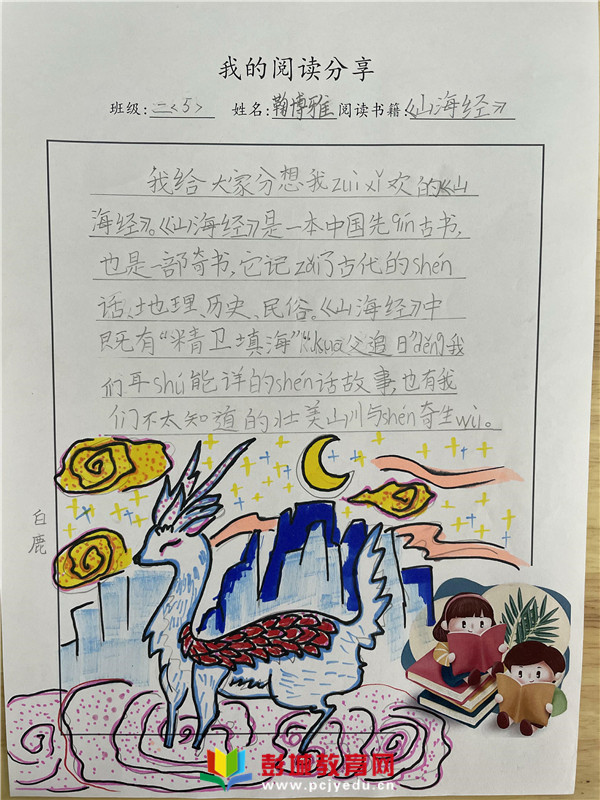 我的阅读分享
班级:二<5> 姓名:鞠博雅 阅读书籍:《山海经》
我给大家分想我zuì xǐ欢的《山
海经》。《山海经》是一本中国先qín古书,
也是一部奇书,它记zǎi了古代的shén
话、地理、历史、民俗。《山海经》中
既有“精卫填海”“kuā父追日”děng我
们耳shú能详的shén话故事,也有我
们不太知道的壮美山川与shén奇生wù。
白鹿
彭埠教育网
www.pcjyedu.cn